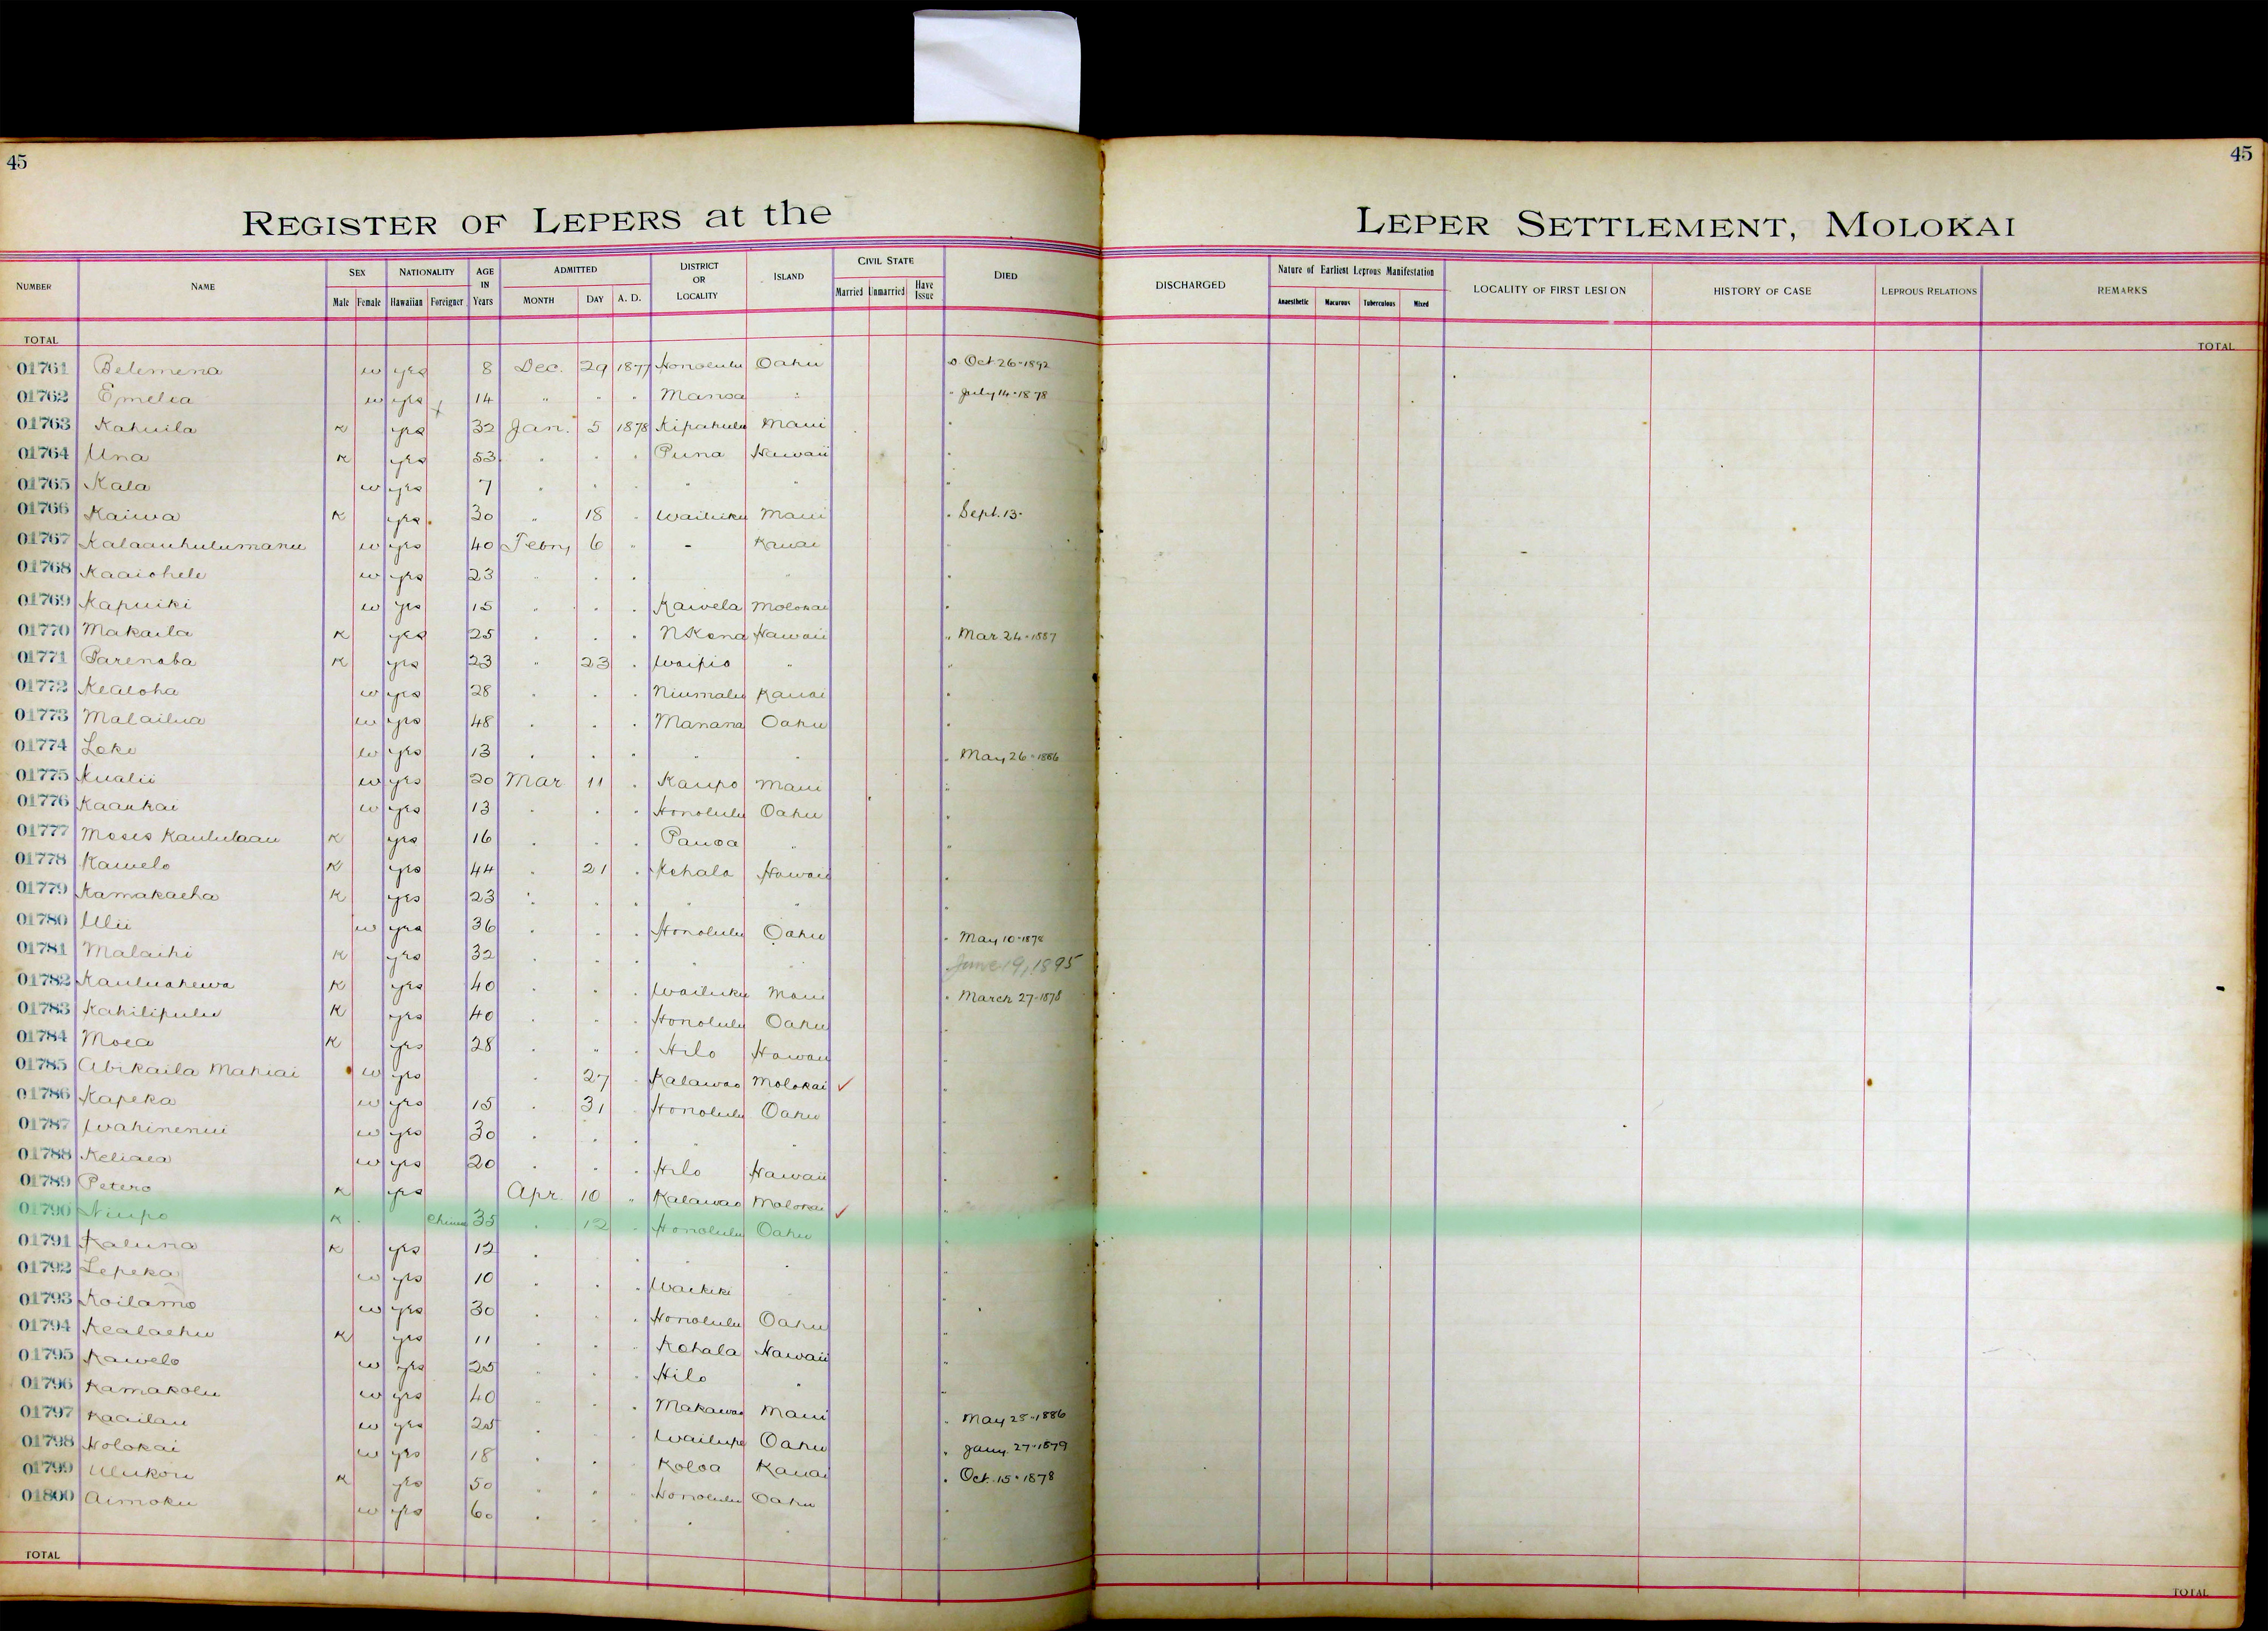 45
45
REGISTER OF LEPERS at the LEPER SETTLEMENT, MOLOKAI
NUMBER NAME SEX NATIONALITY AGE IN Years ADMITTED DISTRICT OR LOCALITY ISLAND CIVIL STATE DIED DISCHARGED Nature of Earliest Leprous Manifestation LOCALITY OF FIRST LESION HISTORY OF CASE LEPROUS RELATIONS REMARKS
Male Female Hawaiian Foreigner MONTH DAY A. D. Married Unmarried Have Issue Anaesthetic Macurous Tuberculous Mixed
TOTAL TOTAL
01761 Belemena w yes 8 Dec. 29 1877 Honolulu Oahu Oct 26-1892
01762 Emelia w yes 14 " " " Manoa " " July 14-1878
01763 Kahuila K yes 32 Jan. 5 1878 Kipahulu Maui "
01764 Una K yes 53 " " " Puna Hawaii "
01765 Kala w yes 7 " " " " " "
01766 Kaiwa K yes 30 " 18 " Wailuku Maui " Sept. 13-
01767 Kalaauhulumanu w yes 40 Febry 6 " - Kauai "
01768 Kaaiohele w yes 23 " " " " "
01769 Kapuiki w yes 15 " " " Kawela Molokai "
01770 Makaila K yes 25 " " " N Kona Hawaii " Mar 24-1887
01771 Parenaba K yes 23 " 23 " Waipio " "
01772 Kealoha w yes 28 " " " Niumalu Kauai "
01773 Malailua w yes 48 " " " Manana Oahu "
01774 Loke w yes 13 " " " " " " May 26-1886
01775 Kualii w yes 20 Mar 11 " Kaupo Maui "
01776 Kaaukai w yes 13 " " " Honolulu Oahu "
01777 Moses Kaululaau K yes 16 " " " Pauoa " "
01778 Kawelo K yes 44 " 21 " Kohala Hawaii "
01779 Kamakaeha K yes 23 " " " " " "
01780 Ulii w yes 36 " " " Honolulu Oahu " May 10-1878
01781 Malaihi K yes 32 " " " " " June 19, 1895
01782 Kauluahewa K yes 40 " " " Wailuku Maui " March 27-1878
01783 Kahilipulu K yes 40 " " " Honolulu Oahu "
01784 Moea K yes 28 " " " Hilo Hawaii "
01785 Abikaila Mahiai w yes " 27 " Kalawao Molokai ✓ "
01786 Kapeka w yes 15 " 31 " Honolulu Oahu "
01787 Wahinenui w yes 30 " " " " " "
01788 Keliaea w yes 20 " " " Hilo Hawaii "
01789 Petero K yes Apr. 10 " Kalawao Molokai ✓ "
01790 Niupo K China 35 " 12 " Honolulu Oahu "
01791 Kaluna K yes 12 " " " " " "
01792 Lepeka w yes 10 " " " Waikiki " "
01793 Koilamo w yes 30 " " " Honolulu Oahu "
01794 Kealaehu K yes 11 " " " Kohala Hawaii "
01795 Kawelo w yes 25 " " " Hilo " "
01796 Kamakolu w yes 40 " " " Makawao Maui " May 25-1886
01797 Kaailau w yes 25 " " " Wailupe Oahu " Jany. 27-1879
01798 Holokai w yes 18 " " " Koloa Kauai " Oct. 15-1878
01799 Ulukou K yes 50 " " " Honolulu Oahu "
01800 Aimoku w yes 60 " " " " " "
TOTAL TOTAL